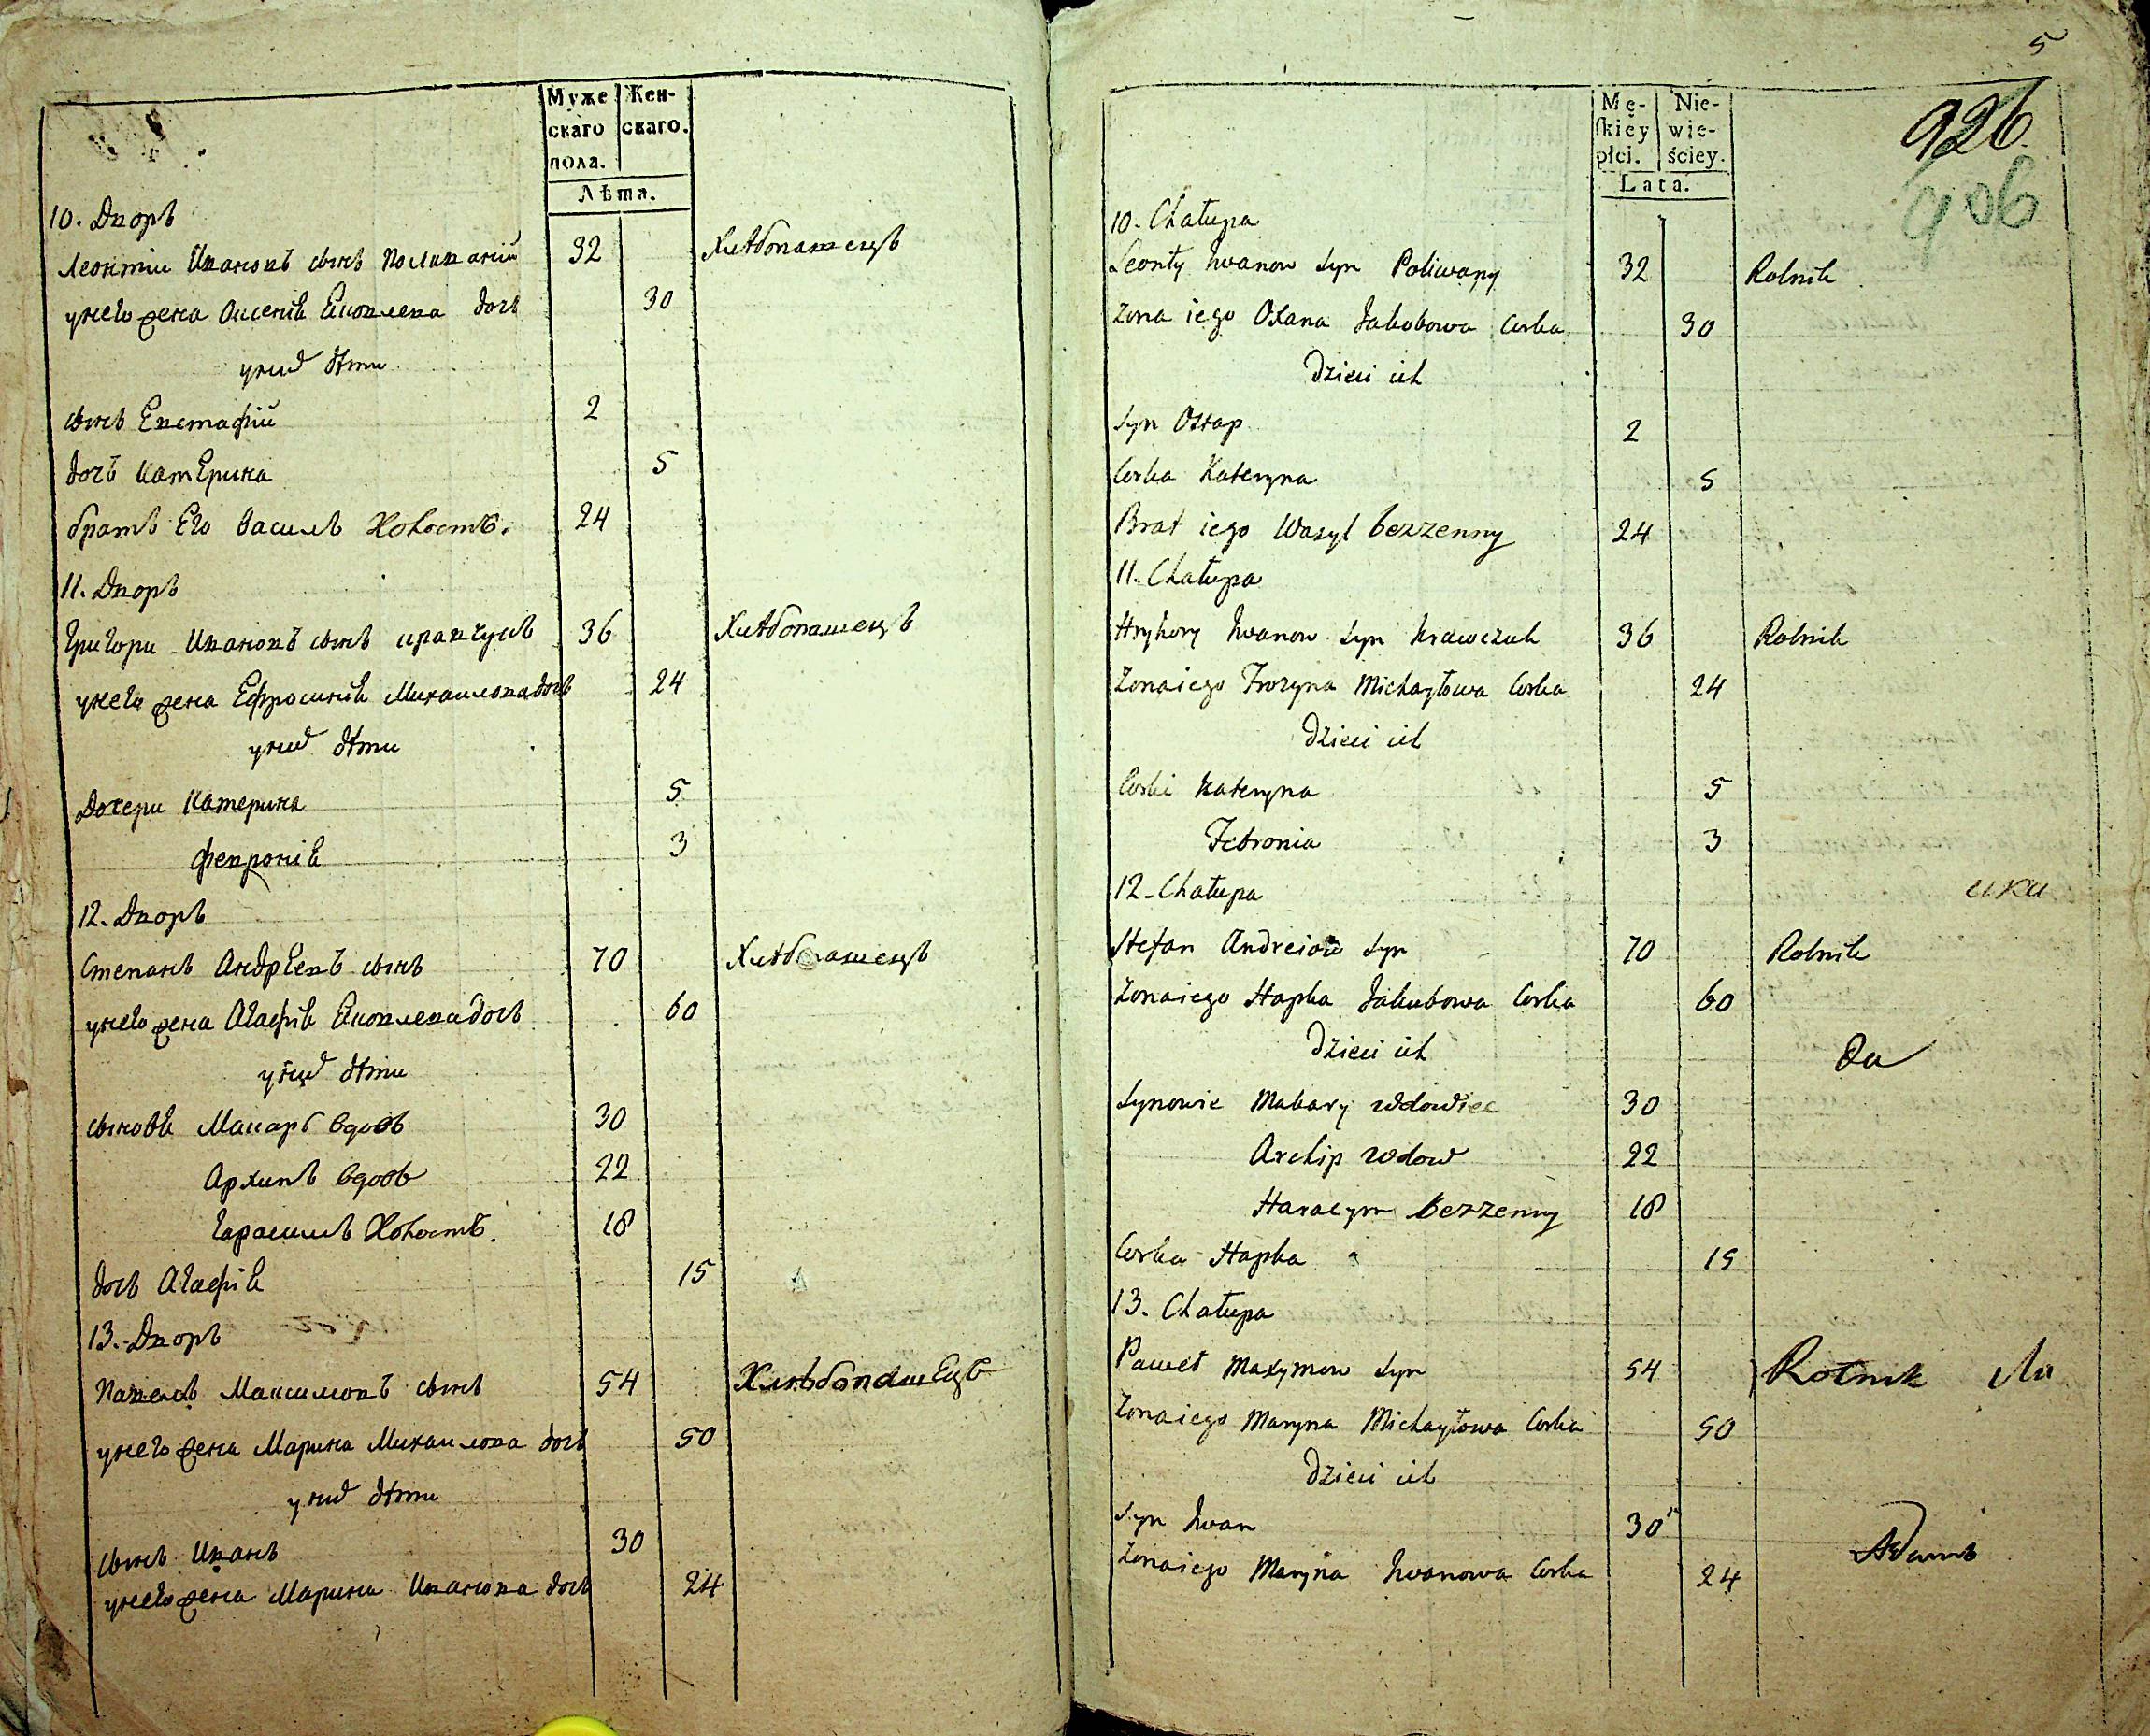 Муже Жен-
скаго скаго.
пола.
Лѣта.
10. Дворъ
Леонтіи Ивановъ сынъ Поливаній 32 Хлѣбопашецъ
унего жена Оксенія Ековлева дочь 30
унихъ дѣти
сынъ Евстафій 2
дочь Катерина 5
братъ Его Василь Холостъ. 24
11. Дворъ
Григори Ивановъ сынъ Кравчукъ 36 Хлѣбопашецъ
унего жена Ефросинія Михаилова дочь 24
унихъ дѣти
Дочери Катерина 5
Февронія 3
12. Дворъ
Степанъ Андрѣевъ сынъ 70 Хлѣбопашецъ
унего жена Агафія Ековлева дочь 60
унихъ дѣти
сыновя Макаръ вдовъ 30
Архипъ вдовъ 22
Гарасимъ Холостъ. 18
дочь Агафія 15
13. Дворъ
Павелъ Максимовъ сынъ 54 Хлѣбопашецъ
унего жена Марина Михаилова дочь 50
унихъ дѣти
сынъ Иванъ 30
унего жена Марина Иванова дочь 24
5
Mę- Nie-
skiey wie-
płci. ściey.
Lata.
926.
906
10. Chałupa
Leonty Iwanow Syn Poliwany 32 Rolnik
Zona iego Oxana Jakobowa Corka 30
Dzieci ich
Syn Ostap 2
Corka Kateryna 5
Brat iego Wasyl bezzenny 24
11. Chałupa
Hryhory Iwanow Syn Krawczuk 36 Rolnik
Zona iego Frozyna Michayłowa Corka 24
Dzieci ich
Corki Kateryna 5
Febronia 3
12. Chałupa
Stefan Andreiow Syn 70 Rolnik
Zona iego Hapka Jakubowa Corka 60
Dzieci ich
Synowie Makary wdowiec 30
Archip wdow 22
Harasym bezzenny 18
Corka Hapka 15
13. Chałupa
Paweł Maxymow Syn 54 Rolnik
Zona iego Maryna Michayłowa Corka 50
Dzieci ich
Syn Iwan 30
Zona iego Maryna Iwanowa Corka 24